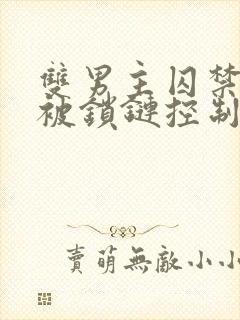 雙男主囚禁
被鎖鏈控制
賣萌無敵小小